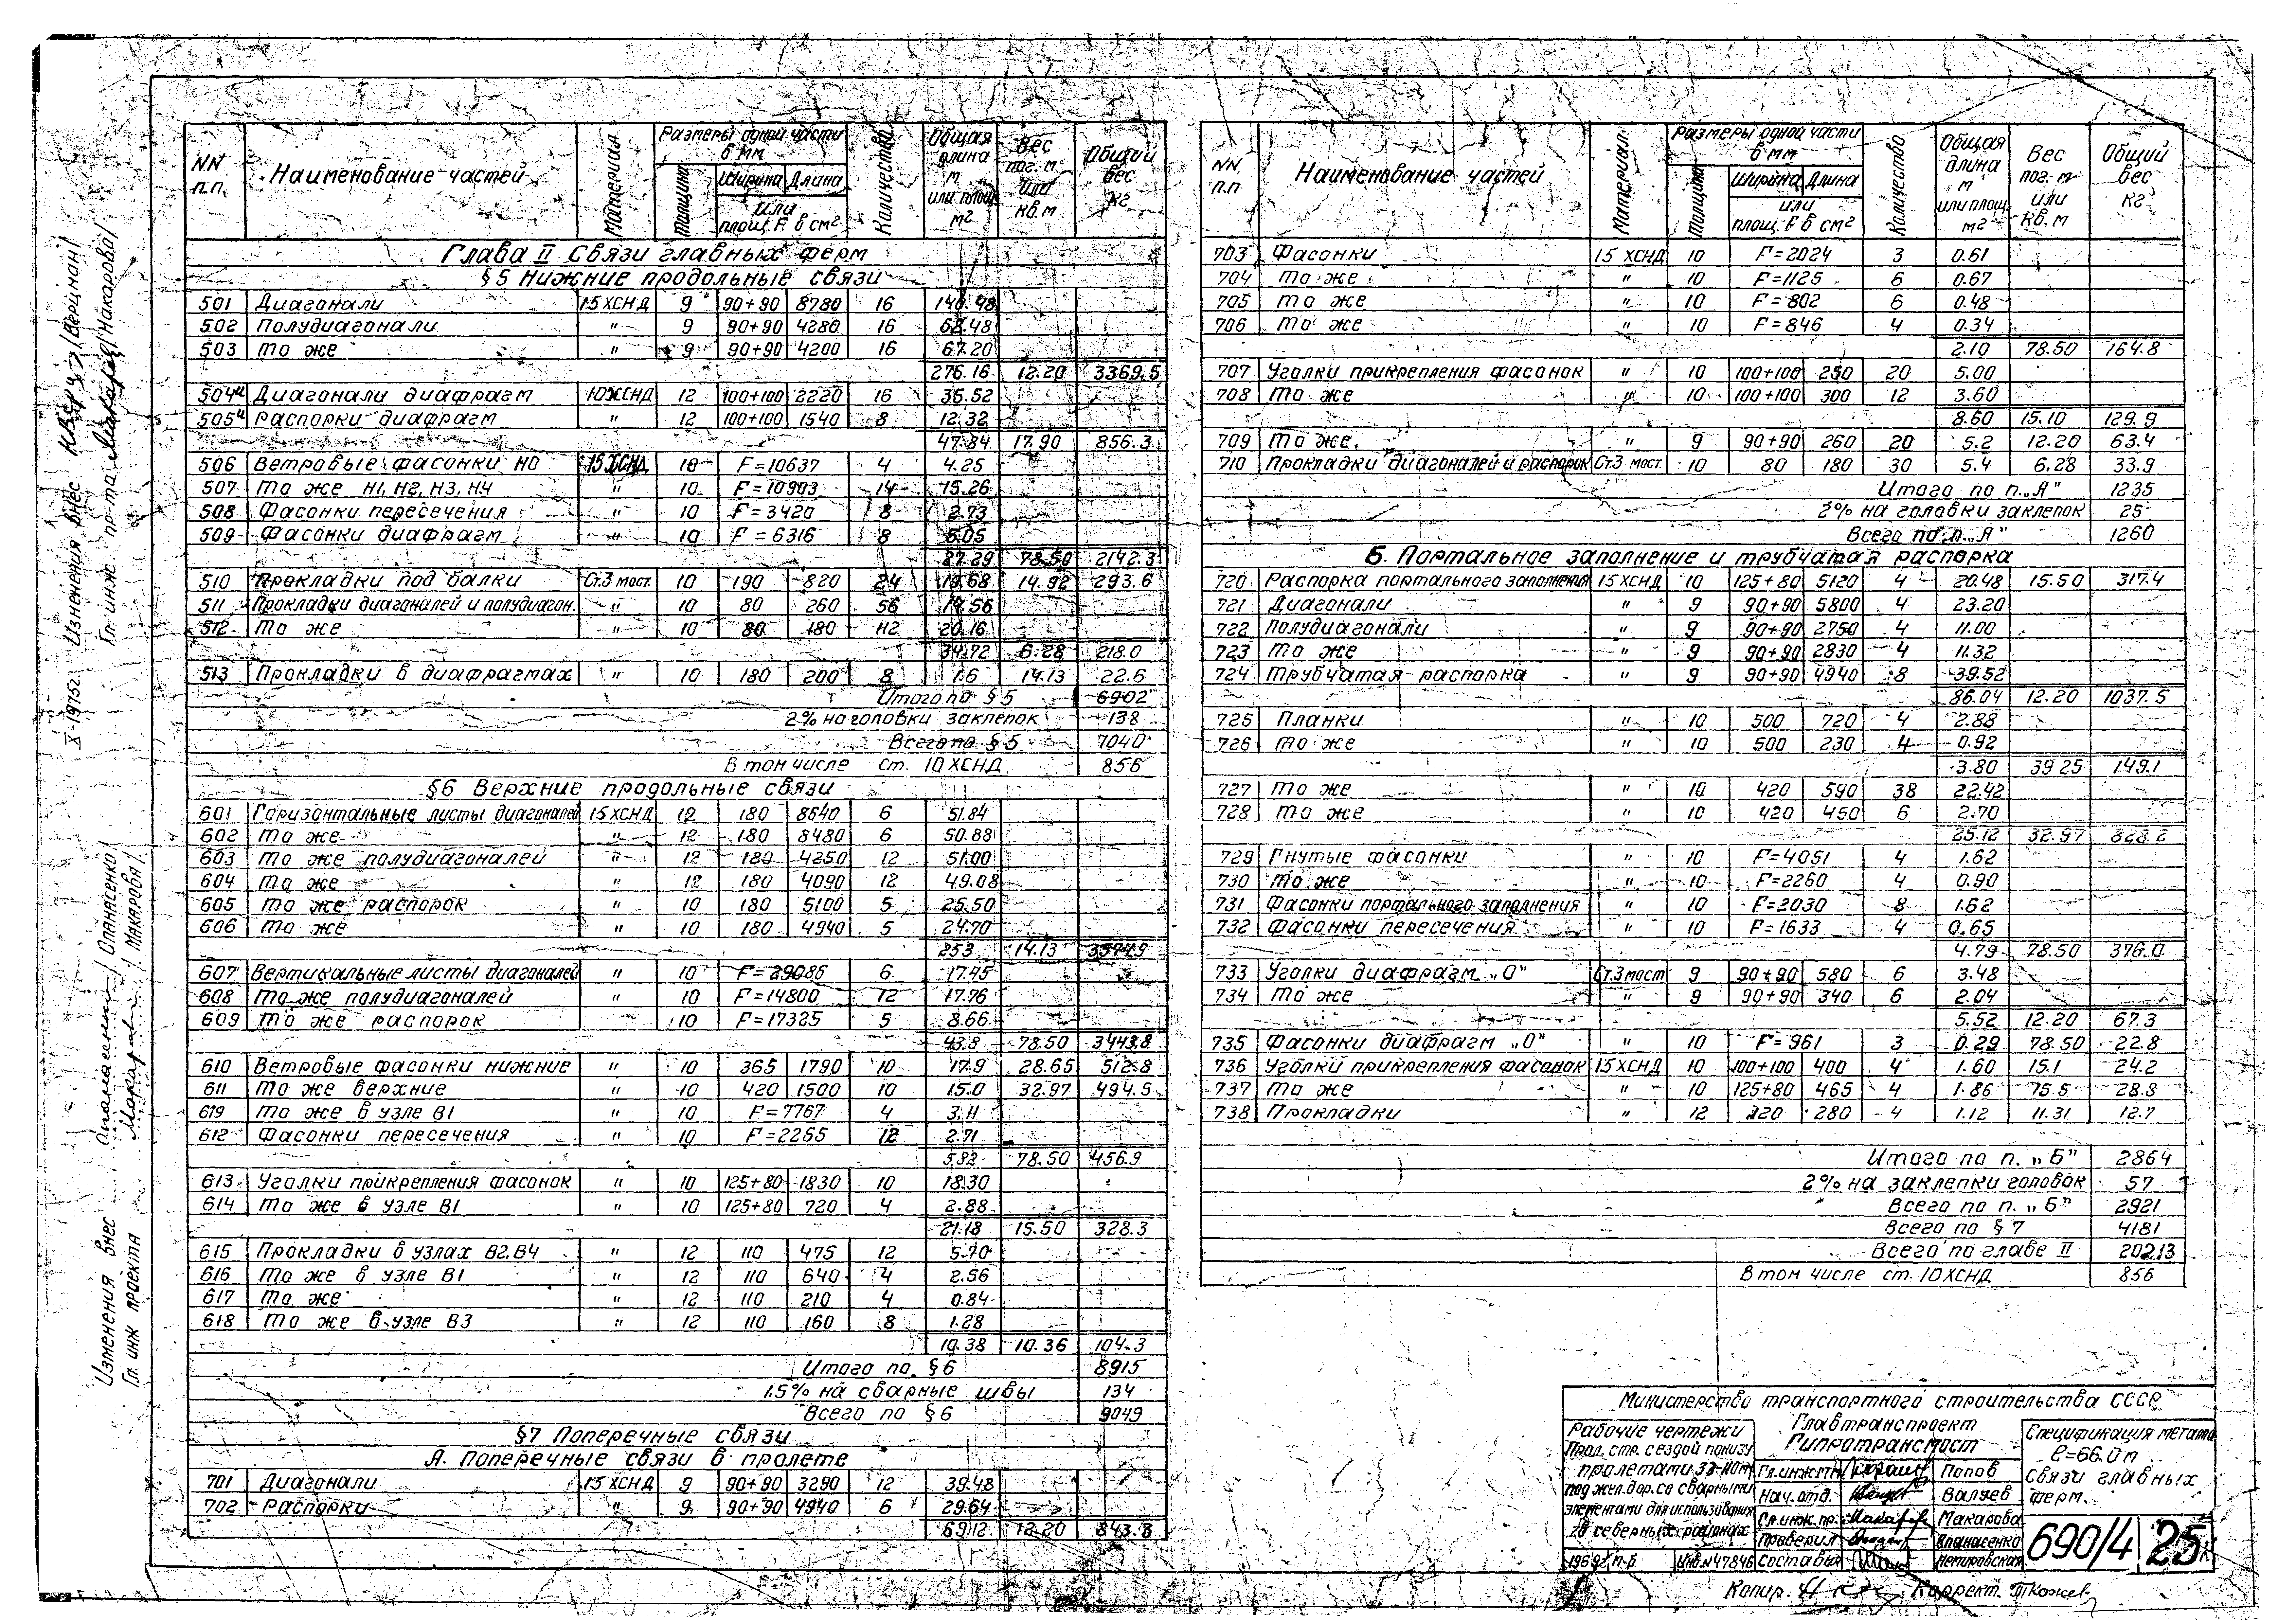 NN п.п. Наименование частей Материал Размеры одной части в мм Толщина Ширина Длина или площ. F в см² Количество Общая длина м или площ. м² Вес пог. м или кв. м Общий вес кг
Глава II Связи главных ферм
§5 Нижние продольные связи
501 Диагонали 15 ХСНД 9 90+90 8780 16 140.48
502 Полудиагонали " 9 90+90 4280 16 68.48
503 То же " 9 90+90 4200 16 67.20
276.16 12.20 3369.5
504ᵘ Диагонали диафрагм 10ХСНД 12 100+100 2220 16 35.52
505ᵘ Распорки диафрагм " 12 100+100 1540 8 12.32
47.84 17.90 856.3
506 Ветровые фасонки Н0 15 ХСНД 10 F=10637 4 4.25
507 То же Н1, Н2, Н3, Н4 " 10 F=10903 14 15.26
508 Фасонки пересечения " 10 F=3420 8 2.73
509 Фасонки диафрагм " 10 F=6316 8 5.05
27.29 78.50 2142.3
510 Прокладки под балки Ст.3 мост. 10 190 820 24 19.68 14.92 293.6
511 Прокладки диагоналей и полудиагон. " 10 80 260 56 14.56
512 То же " 10 80 180 112 20.16
34.72 6.28 218.0
513 Прокладки в диафрагмах " 10 180 200 8 1.6 14.13 22.6
Итого по §5 6902
2% на головки заклепок 138
Всего по §5 7040
В том числе ст. 10 ХСНД 856
§6 Верхние продольные связи
601 Горизонтальные листы диагоналей 15 ХСНД 12 180 8640 6 51.84
602 То же " 12 180 8480 6 50.88
603 То же полудиагоналей " 12 180 4250 12 51.00
604 То же " 12 180 4090 12 49.08
605 То же распорок " 10 180 5100 5 25.50
606 То же " 10 180 4940 5 24.70
253 14.13 3574.9
607 Вертикальные листы диагоналей " 10 F=29086 6 17.45
608 То же полудиагоналей " 10 F=14800 12 17.76
609 То же распорок " 10 F=17325 5 8.66
43.8 78.50 3443.8
610 Ветровые фасонки нижние " 10 365 1790 10 17.9 28.65 512.8
611 То же верхние " 10 420 1500 10 15.0 32.97 494.5
619 То же в узле В1 " 10 F=7767 4 3.11
612 Фасонки пересечения " 10 F=2255 12 2.71
5.82 78.50 456.9
613 Уголки прикрепления фасонок " 10 125+80 1830 10 18.30
614 То же в узле В1 " 10 125+80 720 4 2.88
21.18 15.50 328.3
615 Прокладки в узлах В2.В4 " 12 110 475 12 5.70
616 То же в узле В1 " 12 110 640 4 2.56
617 То же " 12 110 210 4 0.84
618 То же в узле В3 " 12 110 160 8 1.28
10.38 10.36 104.3
Итого по §6 8915
1.5% на сварные швы 134
Всего по §6 9049
§7 Поперечные связи
А. Поперечные связи в пролете
701 Диагонали 15 ХСНД 9 90+90 3290 12 39.48
702 Распорки " 9 90+90 4940 6 29.64
69.12 12.20 843.3
NN п.п Наименование частей Материал Размеры одной части в мм Толщина Ширина Длина или площ. F в см² Количество Общая длина м или площ. м² Вес пог. м или кв. м Общий вес кг
703 Фасонки 15 ХСНД 10 F=2024 3 0.61
704 То же " 10 F=1125 6 0.67
705 То же " 10 F=802 6 0.48
706 То же " 10 F=846 4 0.34
2.10 78.50 164.8
707 Уголки прикрепления фасонок " 10 100+100 250 20 5.00
708 То же " 10 100+100 300 12 3.60
8.60 15.10 129.9
709 То же " 9 90+90 260 20 5.2 12.20 63.4
710 Прокладки диагоналей и распорок Ст.3 мост. 10 80 180 30 5.4 6.28 33.9
Итого по п. „А" 1235
2% на головки заклепок 25
Всего по п. „А" 1260
Б. Портальное заполнение и трубчатая распорка
720 Распорка портального заполнения 15 ХСНД 10 125+80 5120 4 20.48 15.50 317.4
721 Диагонали " 9 90+90 5800 4 23.20
722 Полудиагонали " 9 90+90 2750 4 11.00
723 То же " 9 90+90 2830 4 11.32
724 Трубчатая распорка " 9 90+90 4940 8 39.52
86.04 12.20 1037.5
725 Планки " 10 500 720 4 2.88
726 То же " 10 500 230 4 0.92
3.80 39.25 149.1
727 То же " 10 420 590 38 22.42
728 То же " 10 420 450 6 2.70
25.12 32.97 828.2
729 Гнутые фасонки " 10 F=4051 4 1.62
730 То же " 10 F=2260 4 0.90
731 Фасонки портального заполнения " 10 F=2030 8 1.62
732 Фасонки пересечения " 10 F=1633 4 0.65
4.79 78.50 376.0
733 Уголки диафрагм „О" Ст.3 мост 9 90+90 580 6 3.48
734 То же " 9 90+90 340 6 2.04
5.52 12.20 67.3
735 Фасонки диафрагм „О" " 10 F=961 3 0.29 78.50 22.8
736 Уголки прикрепления фасонок 15 ХСНД 10 100+100 400 4 1.60 15.1 24.2
737 То же " 10 125+80 465 4 1.86 15.5 28.8
738 Прокладки " 12 120 280 4 1.12 11.31 12.7
Итого по п. „Б" 2864
2% на заклепки головок 57
Всего по п. „Б" 2921
Всего по §7 4181
Всего по главе II 20213
В том числе ст. 10 ХСНД 856
Министерство транспортного строительства СССР
Рабочие чертежи
Прол. стр. с ездой понизу
пролетами 33-110м
под жел. дор. со сварными
элементами для использования
в северных районах
1969г п-р Инв.N47846
Главтранспроект
Гипротрансмост
Гл.инж.ГТМ Попов
Нач. отд. Валуев
Гл.инж.пр. Макарова
Проверил Спанасенко
Составил Петровская
Спецификация металла
ℓ=66.0 м
связи главных
ферм.
690/4 25
Копир. Коррект.
X-1975г. Изменения внес /Верцман/
Гл. инж. пр-та /Макарова/
Изменения внес /Спанасенко/
Гл. инж проекта /Макарова/